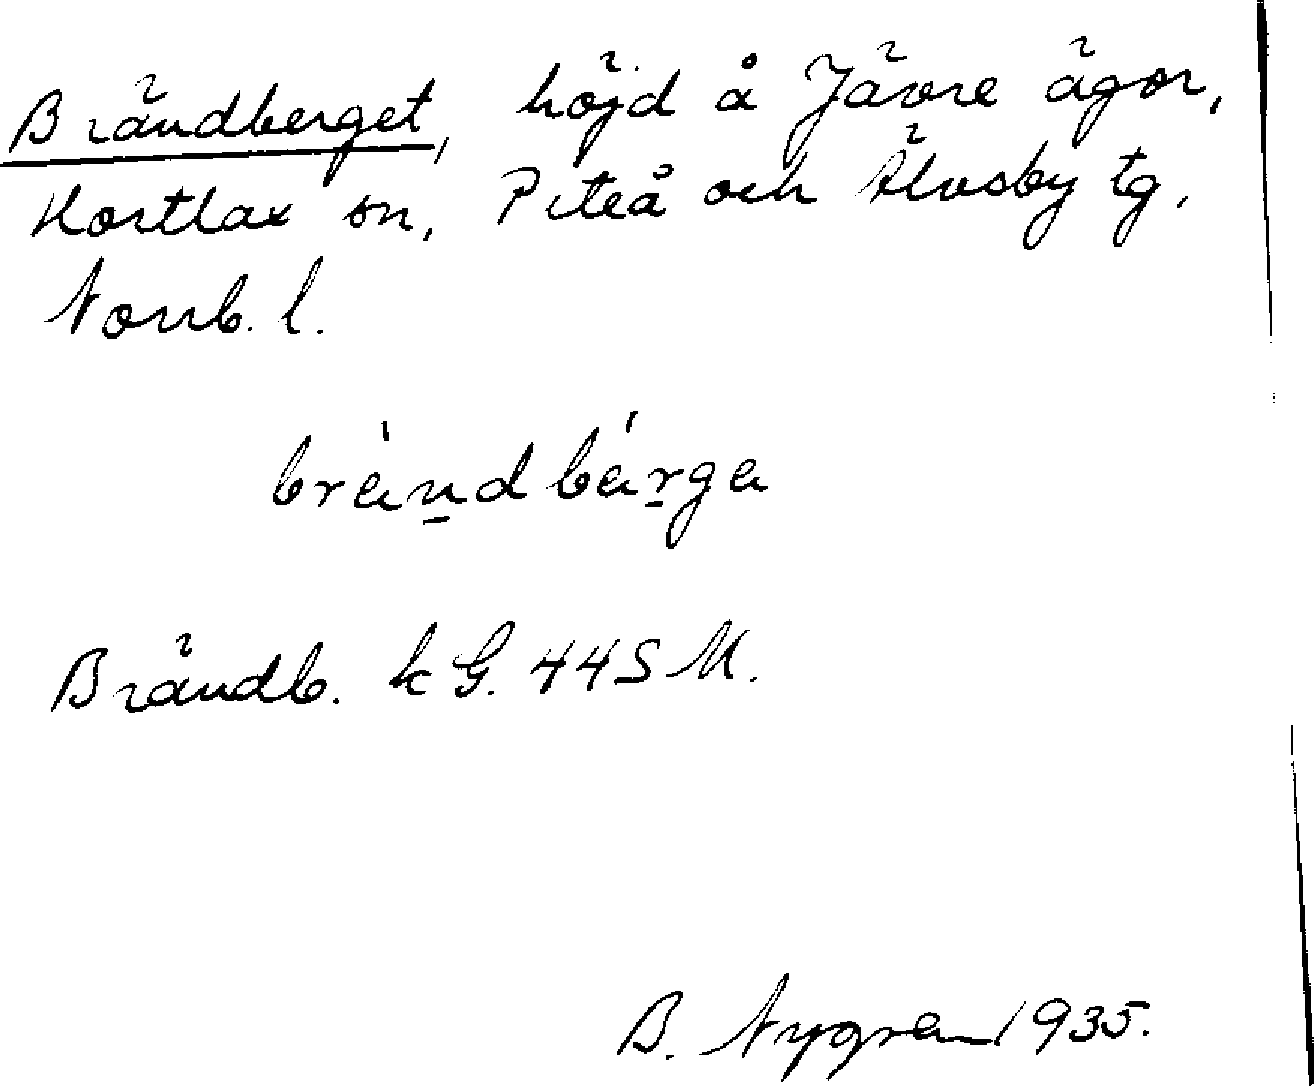 Brändberget, höjd å Jävre ägor,
Hortlax sn, Piteå och Älvsby tg,
Norrb. l.
brä̀ṉdbä́ṟga
Brändb. k G. 44 S M.
B. Nygren 1935.